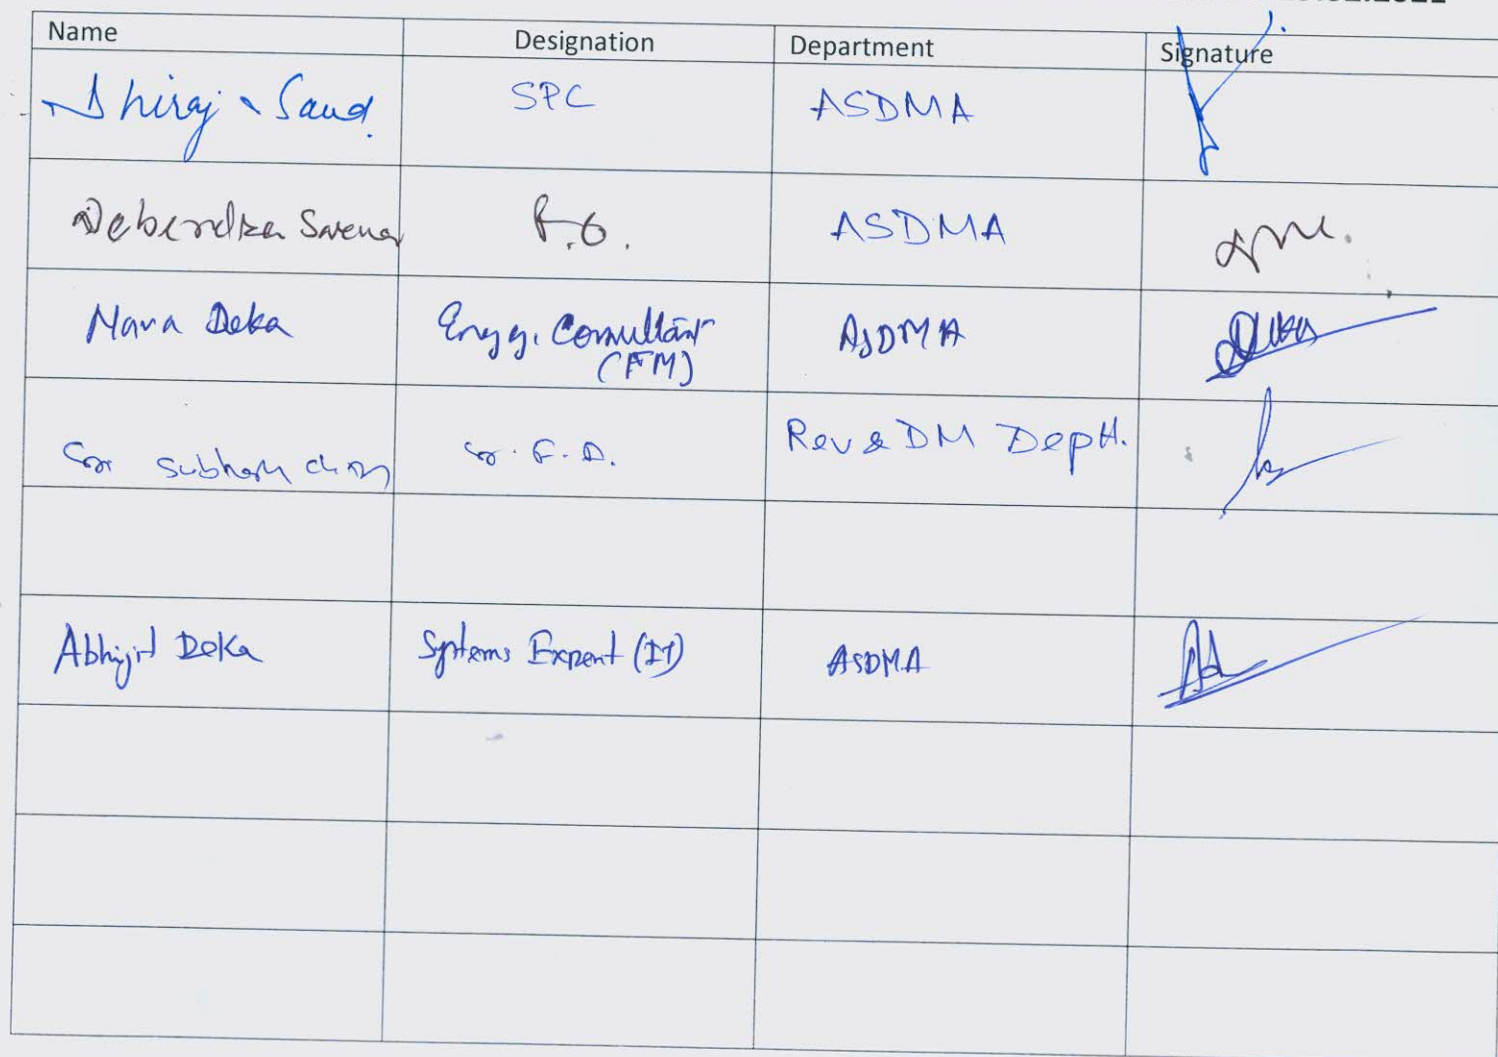 Name Designation Department Signature
Dhiraj Saud. SPC ASDMA
Debendra P.O. ASDMA
Mana Deka Engg. Consultant ASDMA
(FM)
Rev & DM Deptt.
Abhijit Deka Systems Expert (IT) ASDMA